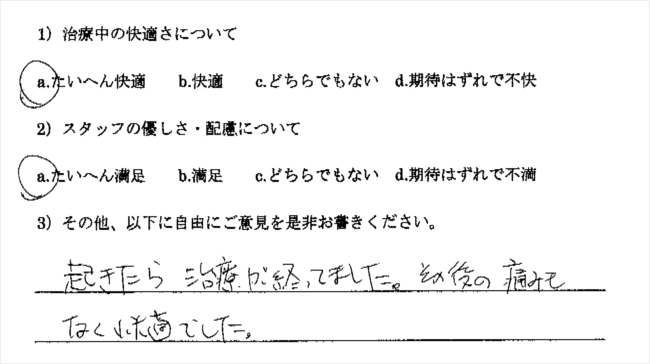 1）治療中の快適さについて
a.たいへん快適　b.快適　c.どちらでもない　d.期待はずれで不快
2）スタッフの優しさ・配慮について
a.たいへん満足　b.満足　c.どちらでもない　d.期待はずれで不満
3）その他、以下に自由にご意見を是非お書きください。
起きたら治療が経ってました。その後の痛みも
なく快適でした。